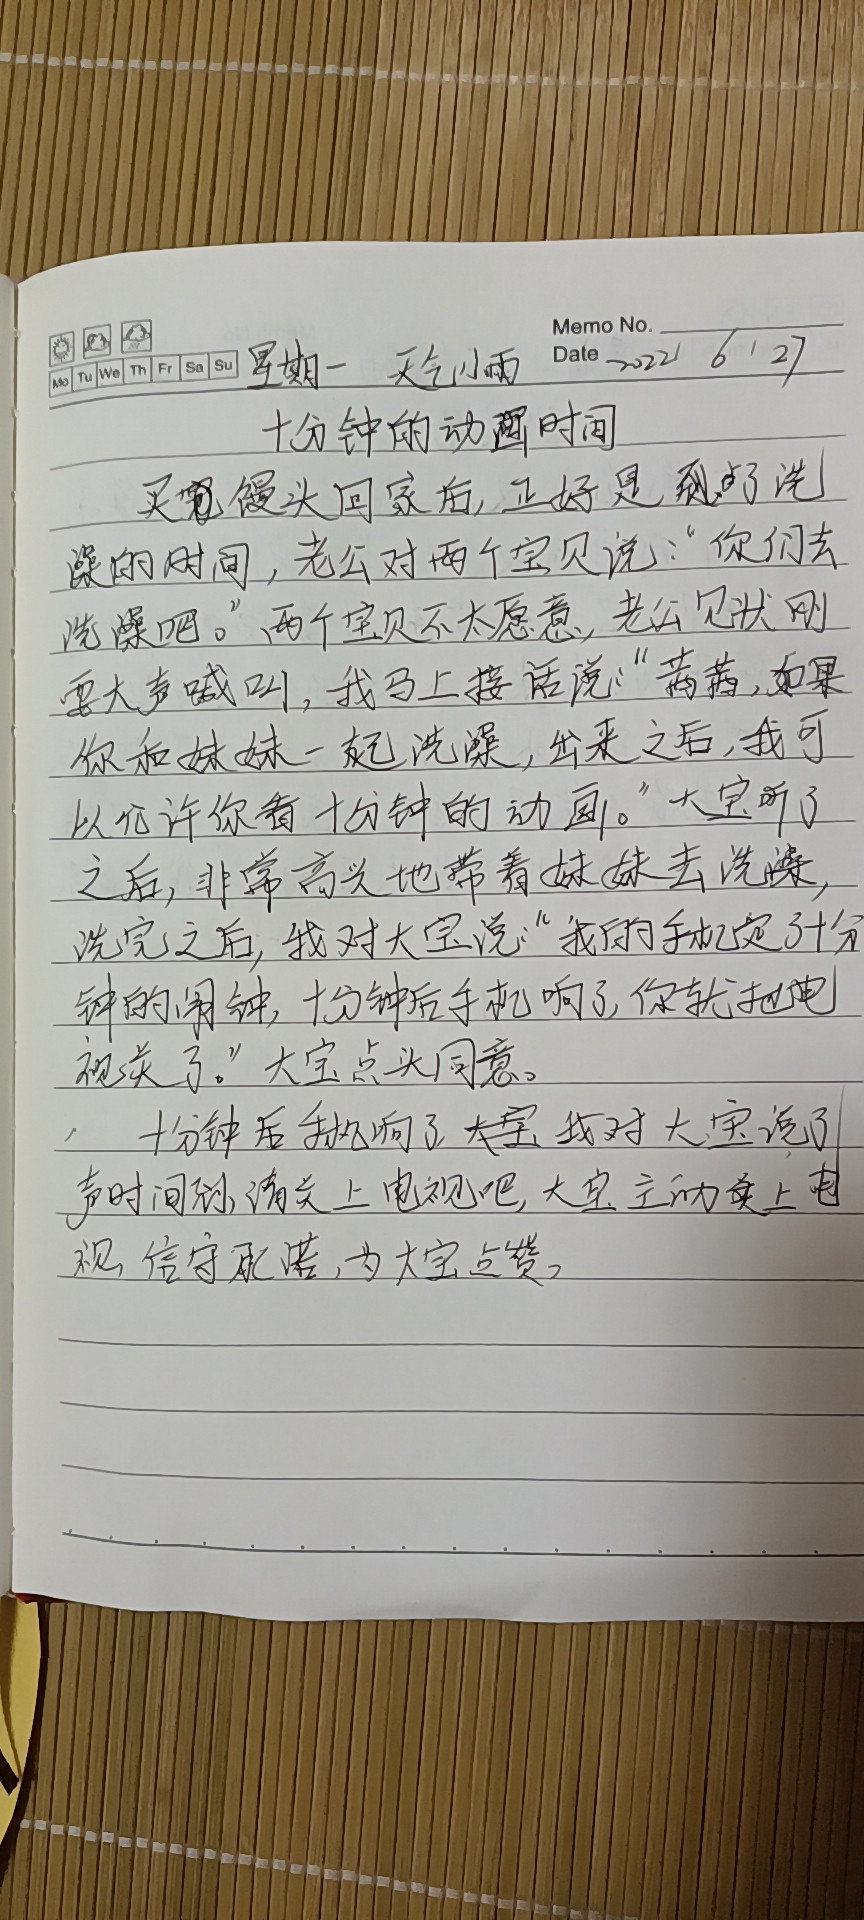 Memo No.
Mo Tu We Th Fr Sa Su 星期一 天气小雨 Date 2022 6 27
十分钟的动画时间
买完馒头回家后,正好是到了洗
澡的时间,老公对两个宝贝说:“你们去
洗澡吧。”两个宝贝不太愿意,老公见状刚
要大声喊叫,我马上接话说:“茜茜,如果
你和妹妹一起洗澡,出来之后,我可
以允许你看十分钟的动画。”大宝听了
之后,非常高兴地带着妹妹去洗澡,
洗完之后,我对大宝说:“我的手机定了十分
钟的闹钟,十分钟后手机响了,你就把电
视关了。”大宝点头同意。
十分钟后手机响了,我对大宝说了
声时间到,请关上电视吧,大宝主动关上电
视,信守承诺,为大宝点赞,